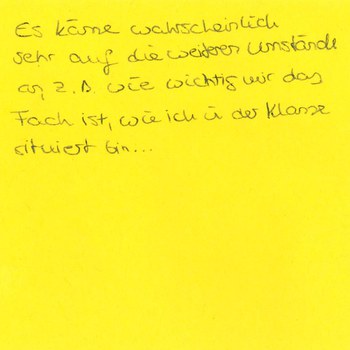 Es käme wahrscheinlich
sehr auf die weiteren Umstände
an, z.B. wie wichtig mir das
Fach ist, wie ich in der Klasse
situiert bin...